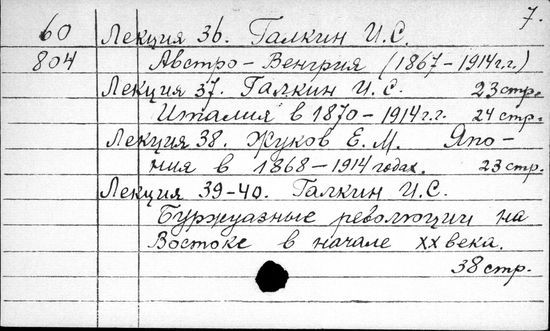 7.
60 Лекция 36. Галкин И.С.
804 Австро-Венгрия (1867-1914г.г.)
Лекция 37. Галкин И.С. 23стр.
Италия в 1870-1914г.г. 24стр.
Лекция 38. Жуков Е.М. Япо-
ния в 1868-1914годах. 23стр.
Лекция 39-40. Галкин И.С.
Буржуазные революции на
Востоке в начале XX века.
38стр.